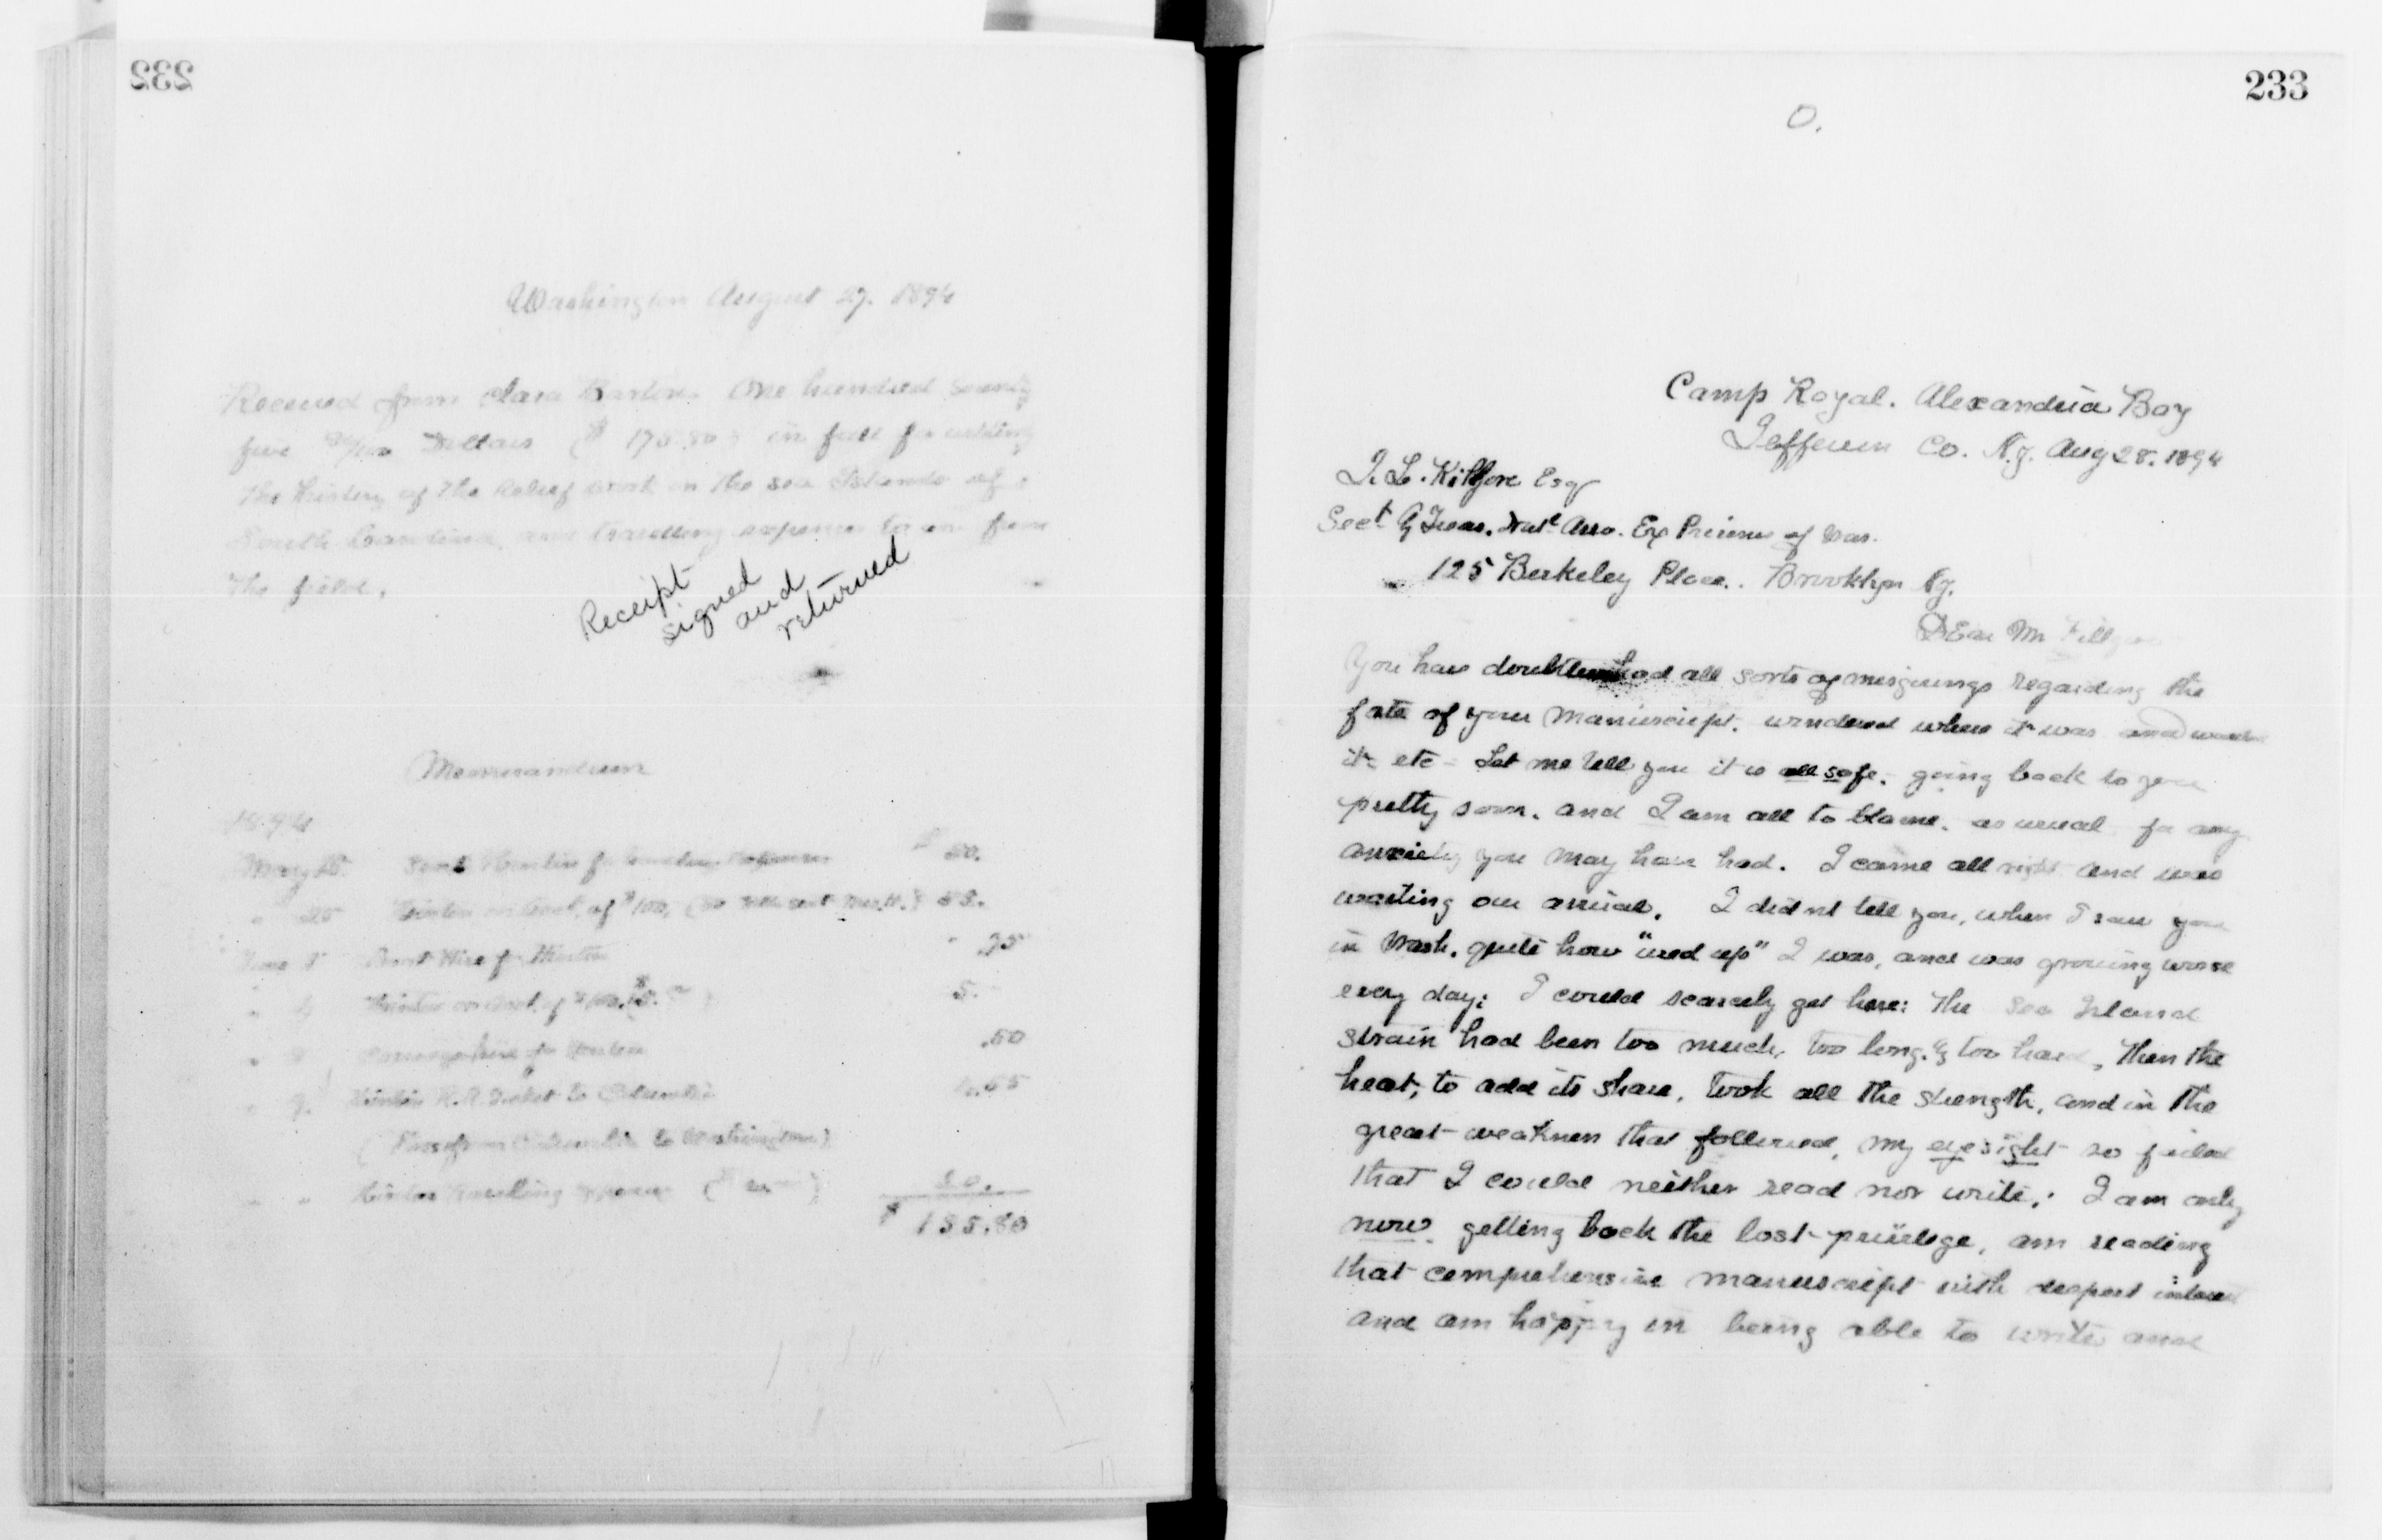 232
Washington August 27. 1894
Received from Clara Barton One hundred seventy
five 80/100 Dollars ($ 175.80) in full for writing
the History of the Relief work on the sea Islands of
South Carolina, and travelling expenses to and from
the field.
Receipt
signed
and
returned
Memorandum
1894
May 15. Sent Hinton for traveling expenses $ 50.
" 25 Hinton on acct. of $100,
Hinton .75
Hinton on acct. of 5.
" 8 Carriage hire for Hinton .50
" 9. Hinton R.R. Ticket to Columbia 4.55
(Pass from Columbia to Washington)
" " Hinton travelling expenses
$ 135.80
233
O.
Camp Royal. Alexandria Bay
Jefferson Co. N.Y. Aug 28. 1894
Kilgore Esq
Sect & Treas. Natl Asso. Ex Prisoners of War.
125 Berkeley Place. Brooklyn N.Y.
Dear Mr Killgore
You have doubtless had all sorts of misgivings regarding the
fate of your manuscript. wondered where it was and wanted
it - etc - Let me tell you it is all safe. going back to you
pretty soon. and I am all to blame. as usual for any
anxiety you may have had. I came all right and was
waiting our arrival. I did nt tell you, when I saw you
in Wash. quite how "used up" I was, and was growing worse
every day; I could scarcely get here: The Sea Island
strain had been too much, too long, & too hard, Then the
heat, to add its share, took all the strength, and in the
great weakness that followed, my eyesight so failed
that I could neither read nor write; I am only
now getting back the lost privilege, am reading
that comprehensive manuscript with respect interest
and am happy in being able to write and